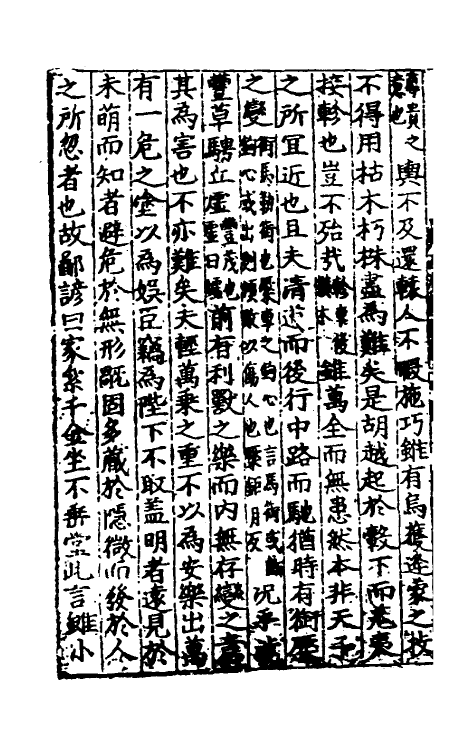 尊貴之意也輿不及還轅人不暇施巧雖有烏獲逢蒙之技
不得用枯木朽株盡為難矣是胡越起於轂下而羌夷
接軫也豈不殆哉軫車後橫木雖萬全而無患然本非天子
之所宜近也且夫清道而後行中路而馳猶時有銜橜
之變銜馬勒銜也橜車之鉤心也言馬銜或斷鉤心或出則傾敗以傷人也橜鉅月反況乎涉
豐草騁丘虛豐茂也虛曰墟前有利獸之樂而內無存變之意
其為害也不亦難矣夫輕萬乘之重不以為安樂出萬
有一危之塗以為娛臣竊為陛下不取蓋明者遠見於
未萌而知者避危於無形旤固多藏於隱微而發於人
之所忽者也故鄙諺曰家絫千金坐不垂堂此言雖小